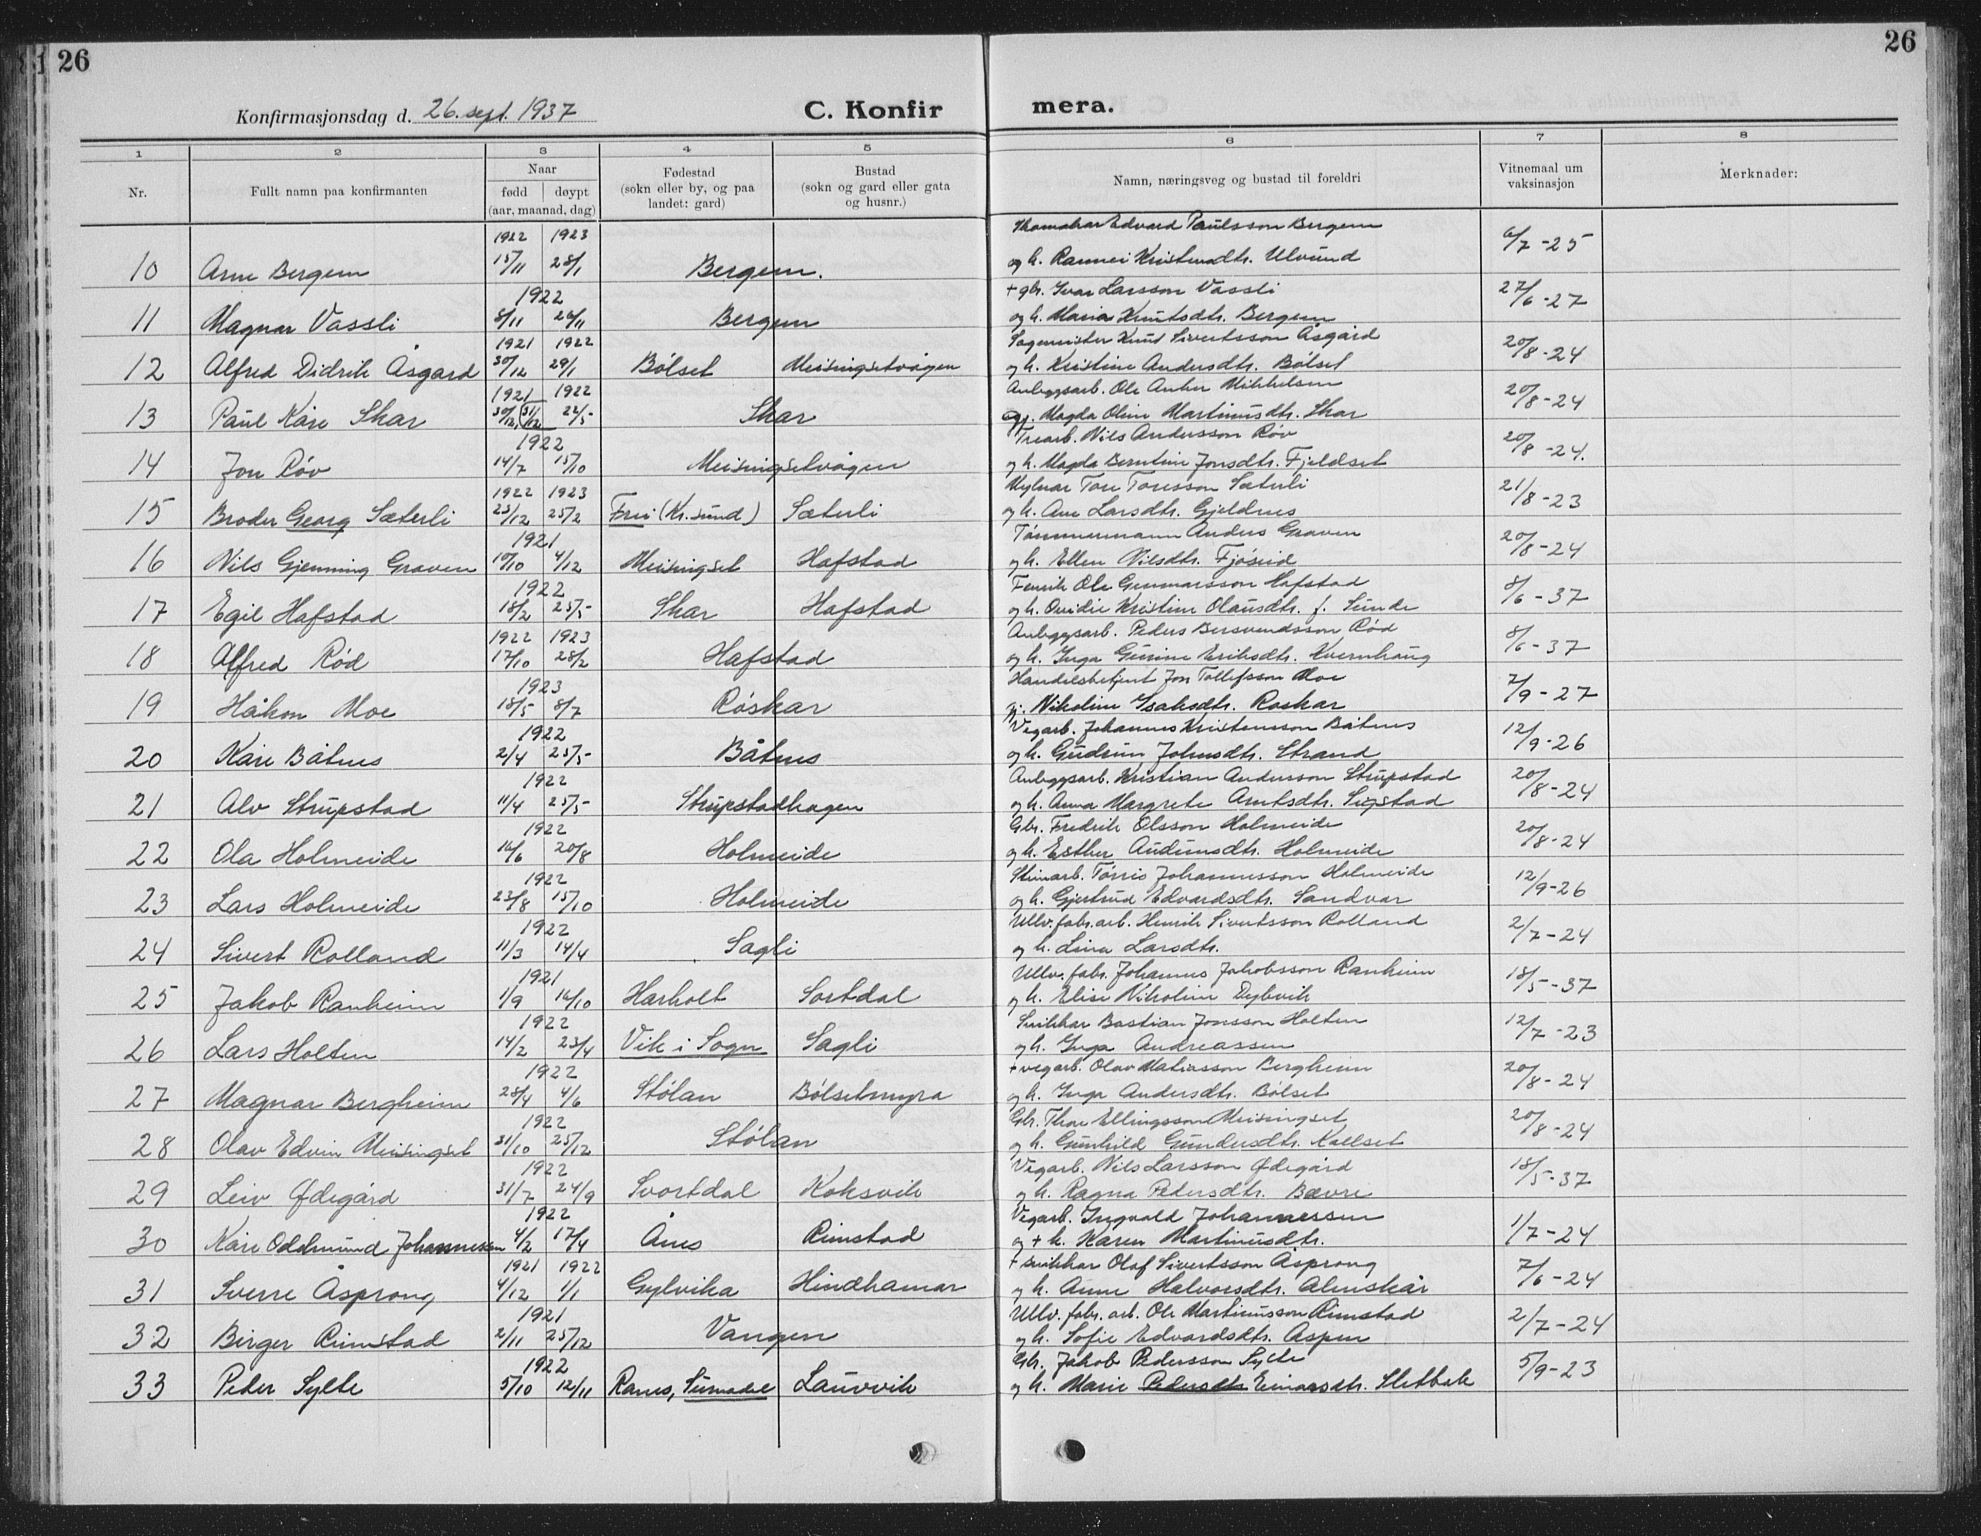 26
26
Konfirmasjonsdag d. 26. sept. 1937
C. Konfir mera.
1 2 3 4 5 6 7 8
Nr.
Fullt namn paa konfirmanten
Naar
fødd døypt
(aar, maanad, dag)
Fødestad
(sokn eller by, og paa
landet: gard)
Bustad
(sokn og gard eller gata
og husnr.)
Namn, næringsveg og bustad til foreldri
Vitnemaal um
vaksinasjon
Merknader:
1922 1923 Edvard Paulsson Bergem 6/7 - 25
10 Arne Bergem 15/11 28/1 Bergem. og h. Rannei Kristensdtr. Ulvund
1922 + gbr. Ivar Larsson Vassli 27/6 - 27
11 Magnar Vassli 8/11 26/11 Bergem og h. Maria Knutsdtr. Bergem
1921 1922 Sagmeister Knut Sivertsson Åsgård 20/8 - 24
12 Alfred Didrik Åsgard 30/12 29/1 Bølset Meisingsetvågen og h. Kristine Andersdtr. Bølset
1921 1922 Anleggsarb. Ole Anker Mikkelsen 20/8 - 24
13 Paul Kåre Skar 30/12 (31/12) 22/5 Skar Magda Oline Martinusdtr. Skar
1922 Trearb. Nils Andersson Røv 20/8 - 24.
14 Jon Røv 14/7 15/10 Meisingsetvågen og h. Magda Berntine Jonsdtr. Fjeldset
1922 1923 Mylnar Tore Toresson Sæterli 21/8 - 23
15 Broder Georg Sæterli 23/12 25/2 Frei (Kr.sund) Sæterli og h. Ane Larsdtr. Gjeldnes
1921 Tømmermann Anders Graven 20/8 - 24
16 Nils Gjenning Graven 10/10 4/12 Meisingset Hafstad og h. Ellen Nilsdtr. Fjøseid
1922 Fenrik Ole Gunnarsson Hafstad 8/6 - 37
17 Egil Hafstad 18/2 25/5 Skar Hafstad og h. Ovidie Kristine Olausdtr. f. Sunde
1922 1923 Anleggsarb. Peders Bersvendsson Rød 8/6 - 37
18 Alfred Rød 17/10 28/2 Hafstad og h. Inga Gurine Eriksdtr. Kvernhaug
1923 Handelsbetjent Jon Tollefsson Moe 7/9 - 27
19 Håkon Moe 18/5 8/7 Røskar Nikoline Isaksdtr. Roskar
1922 Vegarb. Johannes Kristensson Båtnes 12/9 - 26
20 Kåre Båtnes 2/4 25/5 Båtnes og h. Gudrun Johnsdtr. Strand
1922 Anleggsarb. Kristian Andersson Strupstad 20/8 - 24
21 Alv Strupstad 11/4 25/5 Strupstadhagen og h. Anna Margrete Arntsdtr. Sigstad
1922 Gbr. Fredrik Olsson Holmeide 20/8 - 24
22 Ola Holmeide 16/6 20/8 Holmeide og h. Esther Audunsdtr. Holmeide
1922 Steinarb. Tørris Johannesson Holmeide 12/9 - 26
23 Lars Holmeide 23/8 15/10 Holmeide og h. Gjertrud Edvardsdtr. Sandvar
1922 Ullv. fabr. arb. Henrik Sivertsson Rolland 2/7 - 24
24 Sivert Rolland 11/3 14/4 Sagli og h. Lina Larsdtr.
1921 Ullv. fabr. Johannes Jakobsson Ranheim 18/5 - 37
25 Jakob Ranheim 1/9 16/10 Harholt Sortdal og h. Elise Nikoline Dybvik
1922 Snikkar Bastian Jonsson Holten 12/7 - 23
26 Lars Holten 14/2 23/4 Vik i Sogn Sagli og h. Inga Andreassen
1922 + vegarb. Olav Matiasson Bergheim 20/8 - 24
27 Magnar Bergheim 28/4 4/6 Stølan Bølsetmyra og h. Inga Andersdtr. Bølset
1922 Gbr. Thore Ellingsson Meisingset 20/8 - 24
28 Olav Edvin Meisingset 31/10 25/12 Stølan og h. Gunhild Gundersdtr. Kallset
1922 Vegarb. Nils Larsson Ødegård 18/5 - 37
29 Leiv Ødegård 31/7 24/9 Svortdal Koksvik og h. Ragna Pedersdtr. Bævre
1922 Vegarb. Ingvald Johannessen 1/7 - 24
30 Kåre Oddmund Johannessen 4/2 17/4 Ånes Rimstad og + h. Karen Martinusdtr.
1921 1922 + snikkar Olaf Sivertsson Åsprong 7/6 - 24
31 Sverre Åsprong 4/12 1/1 Gylvika Hindhamar og h. Anne Halvorsdtr. Almskår
1921 Ullv. fabr. arb. Ole Martinusson Rimstad 2/7 - 24
32 Birger Rimstad 2/11 25/12 Vangen og h. Sofie Edvardsdtr. Aspen
1922 Gbr. Jakob Pedersson Sylte 5/9 - 23
33 Peder Sylte 5/10 12/11 Ranes, Surnadal Lauvvik og h. Marie Pedersdtr Einarsdtr. Sletbak